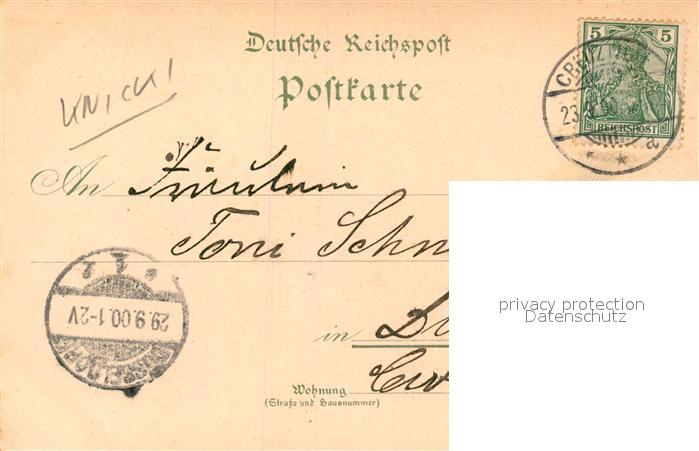 Deutsche Reichspost
Postkarte
KNICK!
5 5
REICHSPOST
23.
a
An Fräulein
Toni Schn
29.9.00.1-2V
in Dü
Wohnung
(Straße und Hausnummer)
privacy protection
Datenschutz